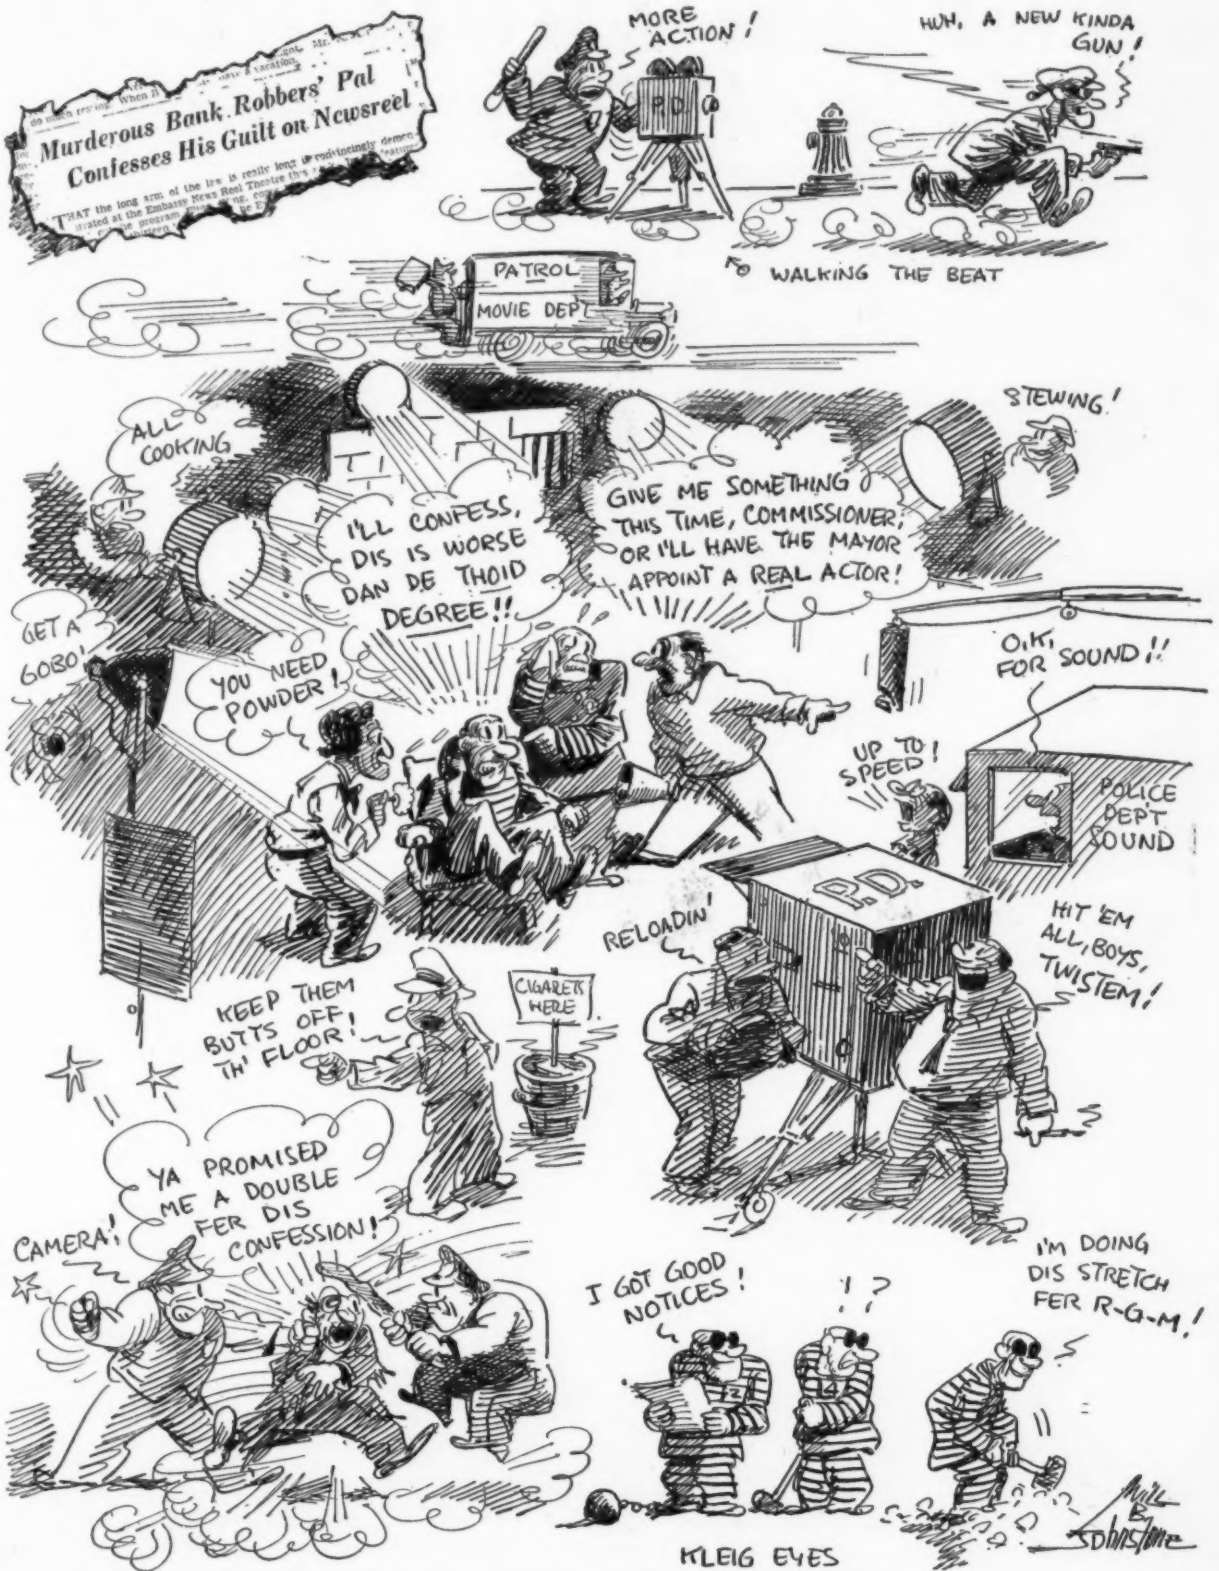 do much
When it
have a vacation.
Murderous Bank Robbers' Pal
Confesses His Guilt on Newsreel
THAT the long arm of the law is really long is convincingly
at the Embassy News Reel Theatre this
program
thirteen
MORE
ACTION!
P.D.
HUH, A NEW KINDA
GUN!
WALKING THE BEAT
PATROL
MOVIE DEPT
ALL
COOKING
STEWING!
I'LL CONFESS,
DIS IS WORSE
DAN DE THOID
DEGREE!!
GIVE ME SOMETHING
THIS TIME, COMMISSIONER,
OR I'LL HAVE THE MAYOR
APPOINT A REAL ACTOR!
GET A
GOBO!
YOU NEED
POWDER!
O.K.
FOR SOUND!!
UP TO
SPEED!
POLICE
DEP'T
SOUND
P.D.
RELOADIN'
HIT 'EM
ALL, BOYS,
TWISTEM!
KEEP THEM
BUTTS OFF
TH' FLOOR!
CIGARETS
HERE
YA PROMISED
ME A DOUBLE
FER DIS
CONFESSION!
CAMERA!
I GOT GOOD
NOTICES!
!?
I'M DOING
DIS STRETCH
FER R-G-M!
12
14
KLEIG EYES
WILL
B.
JOHNSTONE